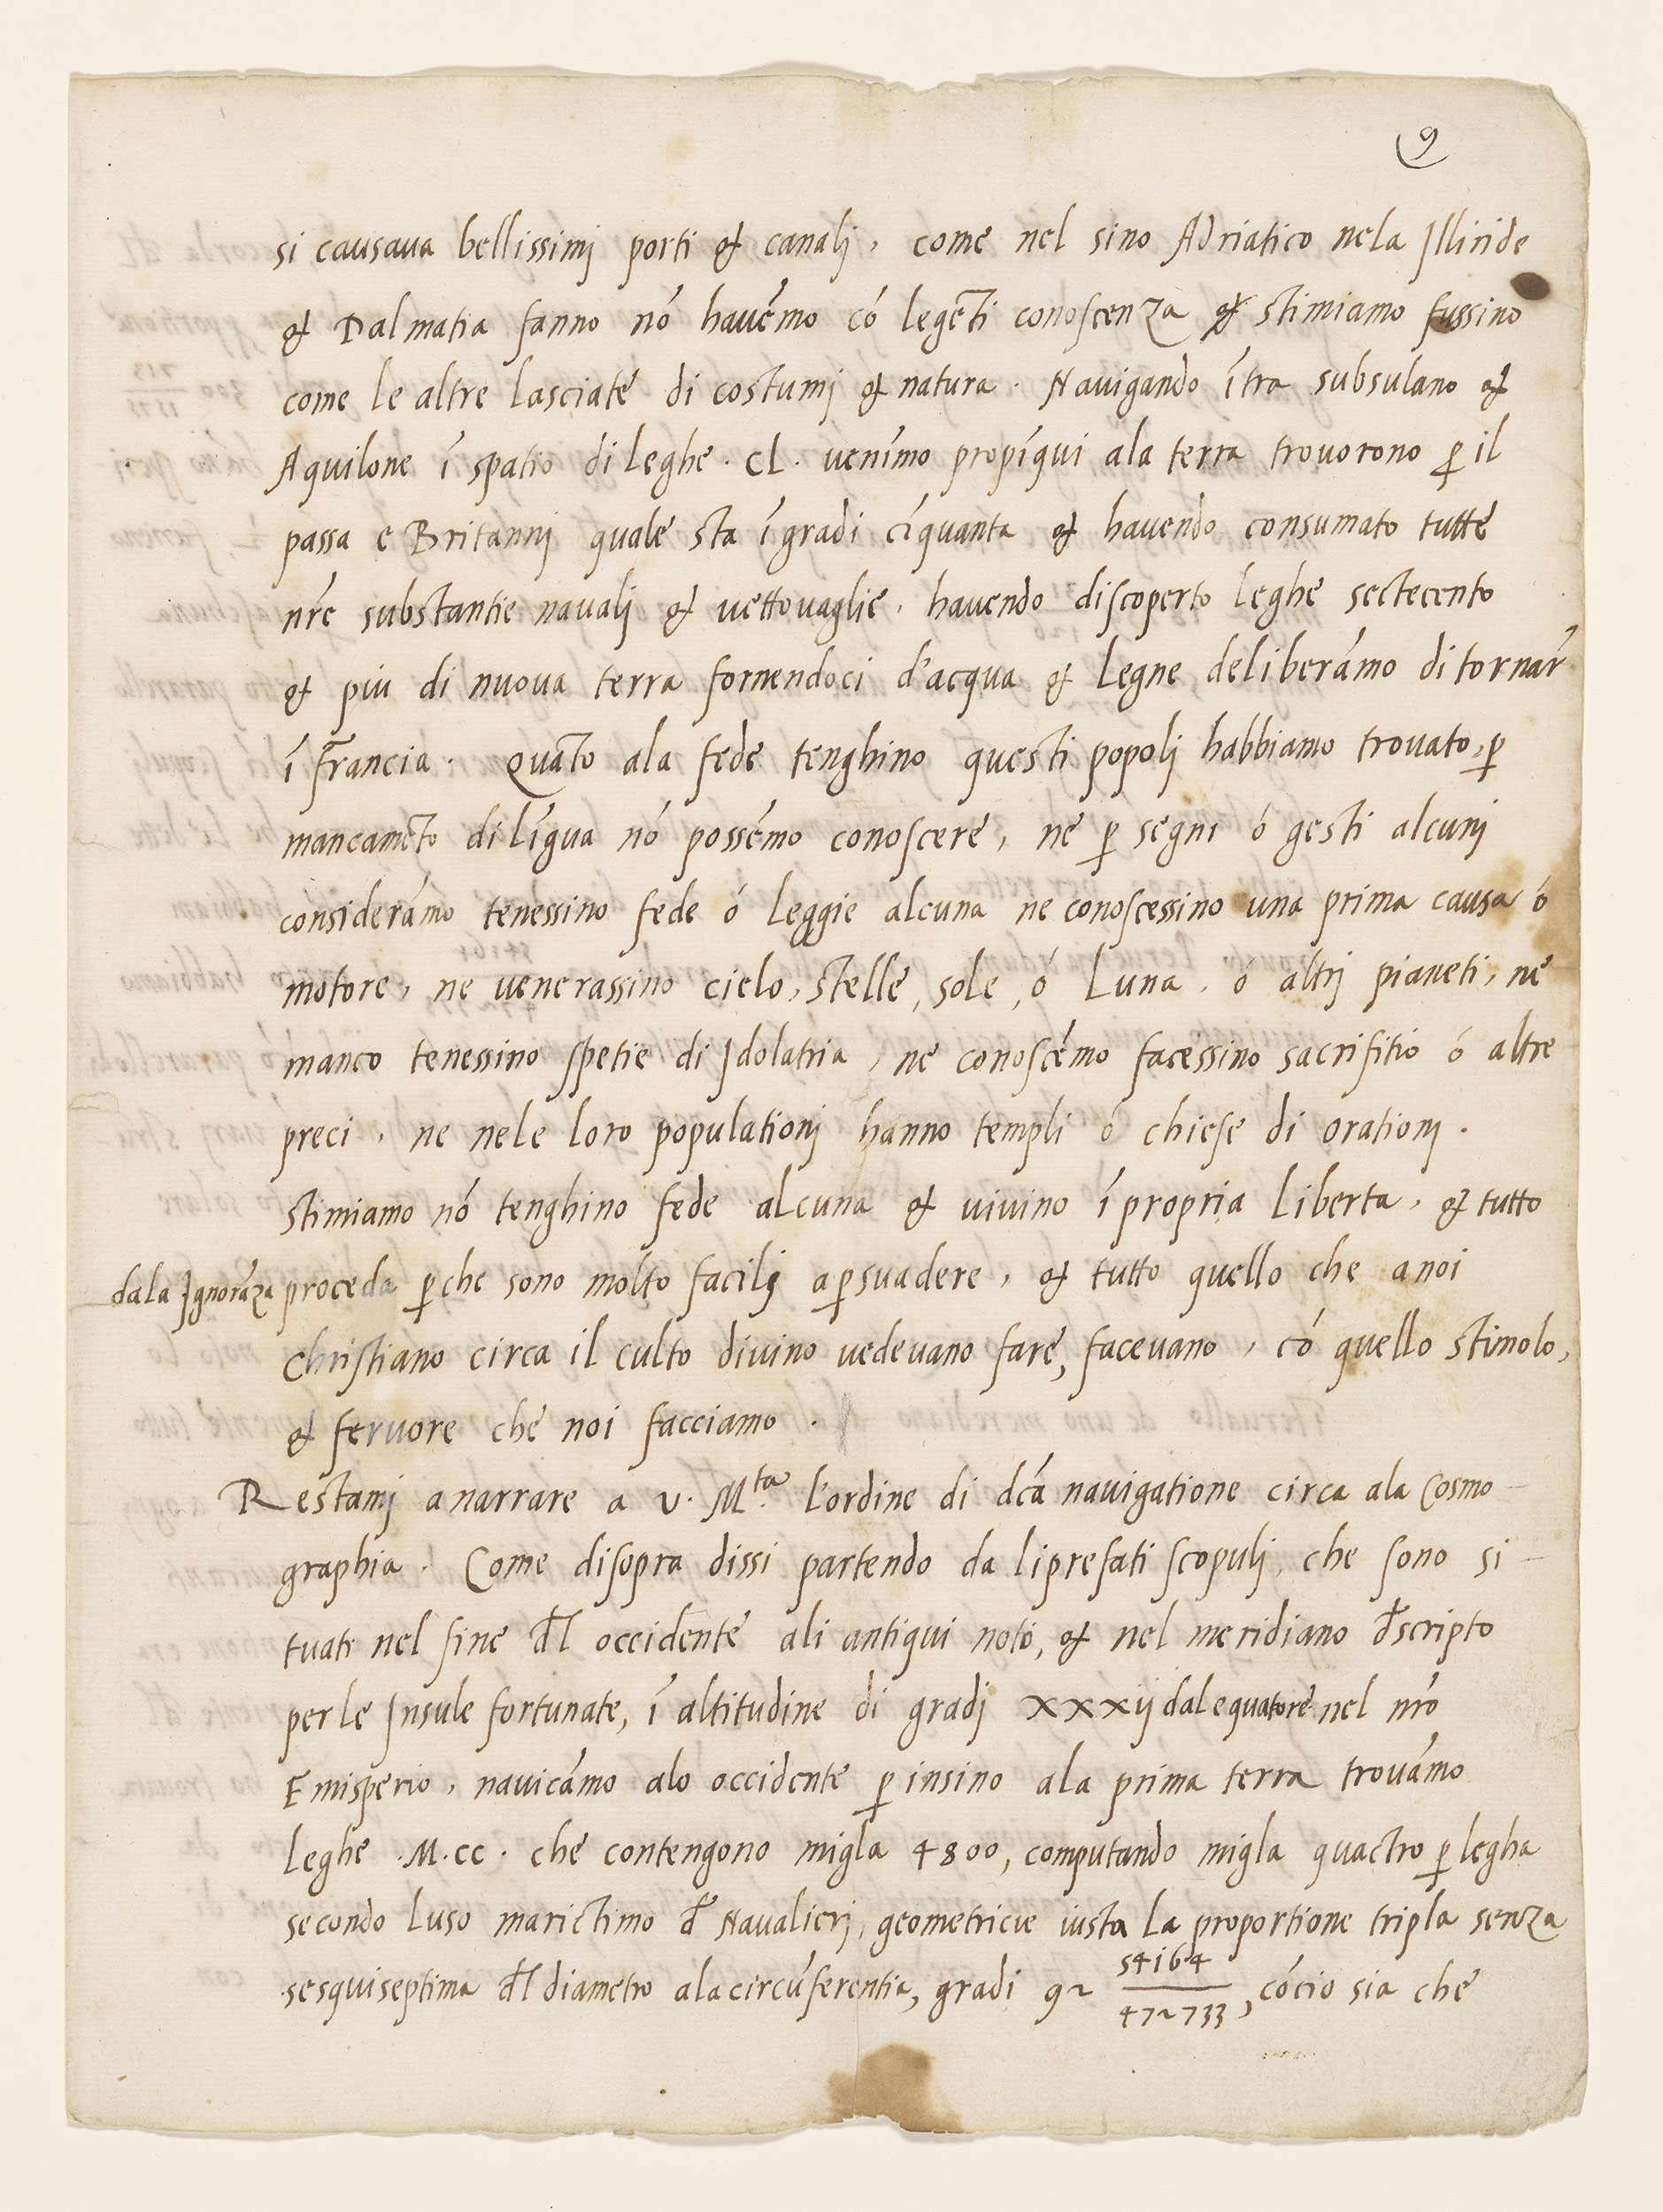 9
si causaua bellissimj porti & canalj, come nel sino Adriatico nela Jlliride
& Dalmatia fanno nó hauémo có legẽti conoscenza & stimiamo fussino
come le altre lasciate di costumj & natura. Nauigando ĩtra subsulano &
Aquilone ĩ spatio di leghe. CL. uenĩmo propĩqui ala terra trouorono ꝑ il
passa e Britannj quale sta ĩ gradi cĩquanta & hauendo consumato tutte
nr̃e substantie naualj & uettouaglie, hauendo discoperto leghe sectecento
& piu di nuoua terra fornendoci d'acqua & legne deliberámo di tornar̃
ĩ Francia. Quãto ala fede tenghino questi popolj habbiamo trouato, ꝑ
mancamẽto di lĩgua nó possémo conoscere, ne ꝑ segni ó gesti alcunj
considerámo tenessino fede ó leggie alcuna ne conoscessino una prima causa ó
motore, ne uenerassino cielo, stelle, sole, ó Luna, ó altrj pianeti, ne
manco tenessino spetie di Jdolatria, ne conoscémo facessino sacrifitio ó altre
preci, ne nele loro populationj hanno templi ó chiese di orationj.
stimiamo nó tenghino fede alcuna & viuino ĩ propria liberta, & tutto
dala Jgnorãza proceda ꝑche sono molto facilj a ꝑsuadere, & tutto quello che a noi
Christiano circa il culto diuino uedeuano fare, faceuano, có quello stimolo,
& feruore che noi facciamo.
Restamj a narrare a v. M.ta l'ordine di dc̃a nauigatione circa ala Cosmo-
graphia. Come disopra dissi partendo da li prefati scopulj, che sono si-
tuati nel fine dl̃ occidente ali antiqui noti, & nel meridiano d̃scripto
per le Jnsule fortunate, ĩ altitudine di gradj xxxij dal equatore nel nr̃o
Emisperio, nauicámo alo occidente ꝑ insino ala prima terra trouámo
leghe .M.cc. che contengono migla 4800, computando migla quactro ꝑ legha
secondo luso marictimo d̃ Naualierj, geometricie iusta la proportione tripla senza
sesquiseptima dl̃ diametro ala circũferentia, gradi 92 54164/472733, cócio sia che